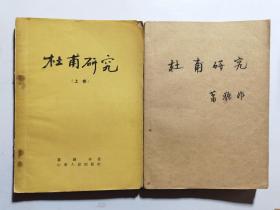 杜甫研究
(上卷)
萧涤非著
山东人民出版社
杜甫研究
萧涤非